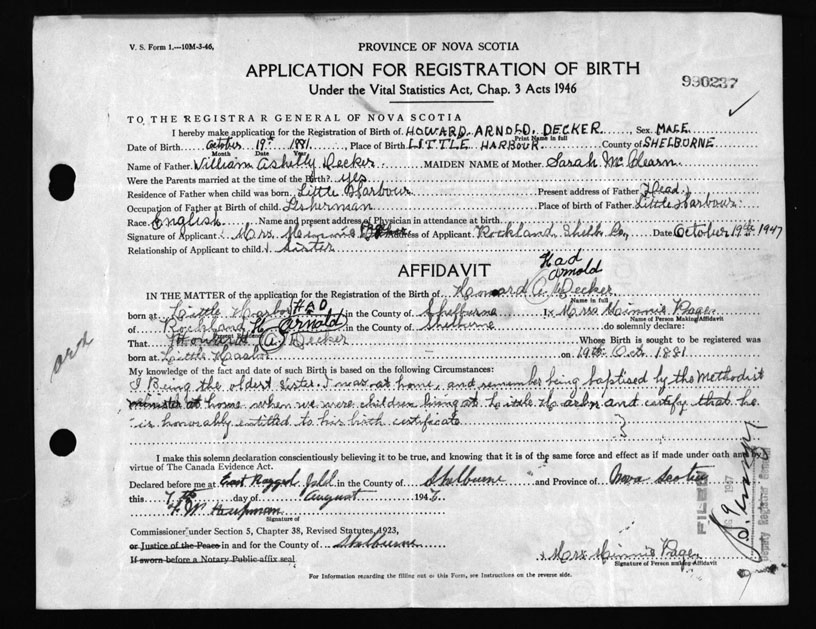 V. S. Form 1.—10M-3-46,
PROVINCE OF NOVA SCOTIA
APPLICATION FOR REGISTRATION OF BIRTH
Under the Vital Statistics Act, Chap. 3 Acts 1946
990237
TO THE REGISTRAR GENERAL OF NOVA SCOTIA
I hereby make application for the Registration of Birth of HOWARD ARNOLD DECKER Sex MALE
Print Name in full
Date of Birth October 19th 1881 Place of Birth LITTLE HARBOUR County of SHELBURNE
Month Date Year
Name of Father William Decker MAIDEN NAME of Mother Sarah
Were the Parents married at time of the Birth? yes
Residence of Father when child was born Little Harbour Present address of Father Dead
Occupation of Father at Birth of child Fisherman Place of birth of Father Little Harbour
Race English Name and present address of Physician in attendance at birth
Signature of Applicant Mrs. Minnie Address of Applicant Rockland, Shelb Co, Date October 19th 1947
Relationship of Applicant to child Sister
AFFIDAVIT
HAD
Arnold
IN THE MATTER of the application for the Registration of the Birth of Howard A. Decker
Name in full
born at Little Harbor in the County of Shelburne I, Mrs Minnie Page
HAD
Name of Person Making Affidavit
of Rockland Arnold in the County of Shelburne do solemnly declare:
That Howard A Decker Whose Birth is sought to be registered was
born at Little Harbor on 19th Oct. 1881
My knowledge of the fact and date of such Birth is based on the following Circumstances:
I Being the oldest sister. I was at home, and remember being baptised by the Methodist
minister at home when we were children living at Little Harbor and certify that he
is honorably entitled to his birth certificate
I make this solemn declaration conscientiously believing it to be true, and knowing that it is of the same force and effect as if made under oath and by
virtue of The Canada Evidence Act.
Declared before me at East Ragged Isld in the County of Shelburne and Province of Nova Scotia
this 7th day of August 194
Signature of
Commissioner under Section 5, Chapter 38, Revised Statutes, 1923,
or Justice of the Peace in and for the County of Shelburne
If sworn before a Notary Public affix seal
Mrs. Minnie Page
Signature of Person making Affidavit
For Information regarding the filling out of this Form, see Instructions on the reverse side.
FILED
1947
Deputy Registrar General